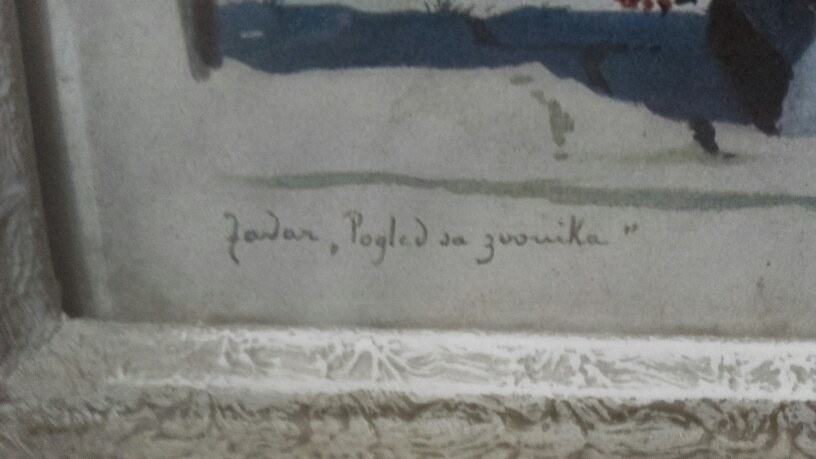 Zadar, „Pogled sa zvonika"